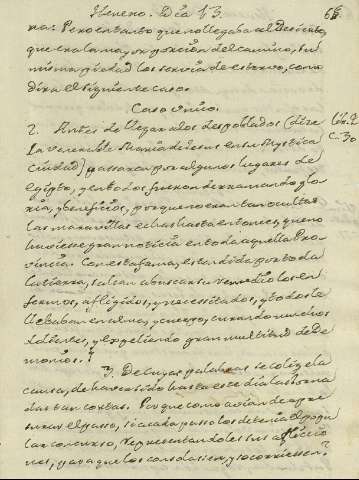 Henero. Dia 13. 68
nar. Pero en tanto que no llegaba al Desierto,
que era la mayor porcion del camino, su
misma piedad los servia de estorvo, como
dira el siguiente caso.
Caso unico.
2. Antes de llegar a los despoblados (dize Lib. 2
la venerable Maria de Jesus en su Mystica C. 30
Ciudad) passaron por algunos lugares de
Egipto, y en todos fueron derramando glo
ria, y beneficios, porque no eran tan ocultas
las maravillas echas hasta entonces, que no
huviesse gran noticia en toda aquella Pro
vincia. Con esta fama, estendida por toda
la tierra, salian a buscar su remedio los en
fermos, afligidos, y necessitados, y todos le
llebaban en alma, y cuerpo, curando muchos
dolientes, y expeliendo gran multitud de De
monios.
3. De cuyas palabras se colige la
causa, de haver sido hasta este dia las jorna
das tan cortas. Porque como avian de apre
surar el passo, si cada passo los detenia el popu
lar concurso, representandoles sus afliccio
nes, para que los consolassen, y socorriessen?